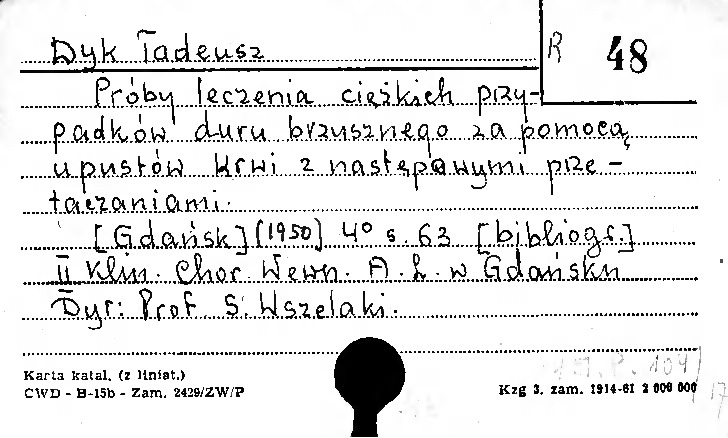 Dyk Tadeusz R 48
Próby leczenia ciężkich przy-
padków duru brzusznego za pomocą
upustów krwi z następowymi prze-
taczaniami.
[Gdańsk] [1950] 4° s. 63 [bibliogr.]
II Klin. Chor. Wewn. A. L. w Gdańsku
Dyr: Prof. S. Wszelaki.
Karta katal. (z liniat.)
CWD - B-15b - Zam. 2429/ZW/P
Kzg 3. zam. 1914-61 2 000 000